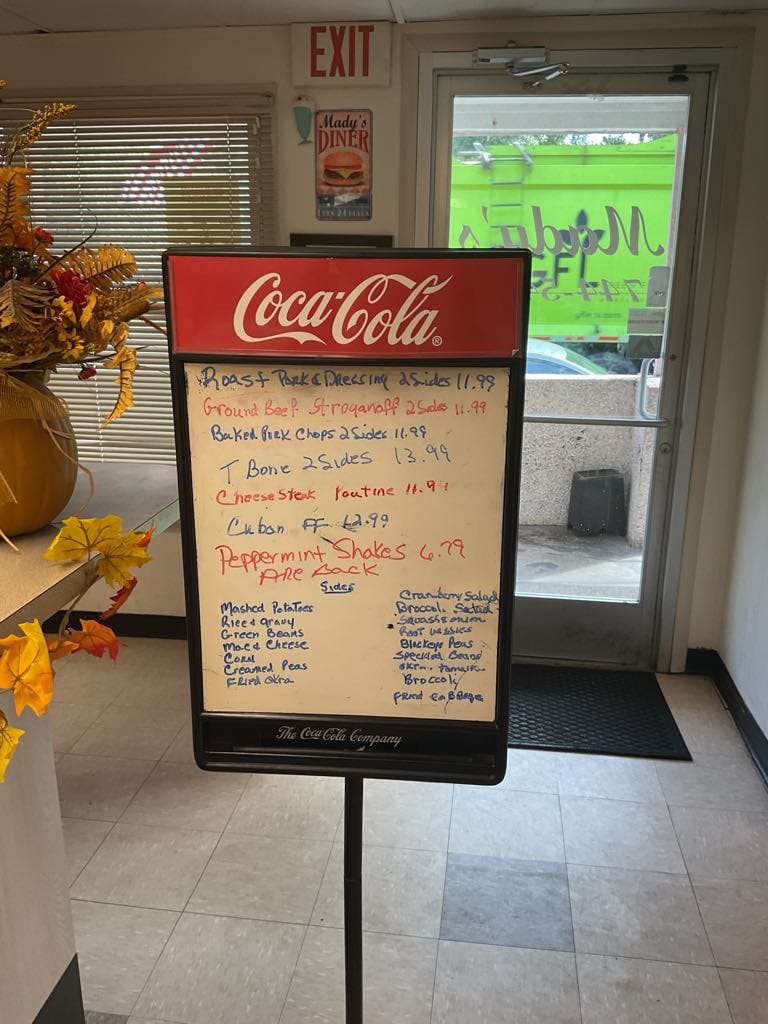 EXIT
Mady's
DINER
Mady's
744-5
Coca-Cola®
Roast Pork & Dressing 2 Sides 11.99
Ground Beef Stroganoff 2 Sides 11.99
Baked Pork Chops 2 Sides 11.99
T Bone 2 Sides 13.99
Cheese Steak Poutine 11.99
Cuban FF 12.99
Peppermint Shakes 6.79
Are Back
Sides
Mashed Potatoes
Rice & gravy
Green Beans
Mac & Cheese
Corn
Creamed Peas
Fried Okra
Cranberry Salad
Broccoli Salad
Squash & onion
Root
Blackeye Peas
Speckled Beans
Okra
Broccoli
Fried Cabbage
The Coca-Cola Company